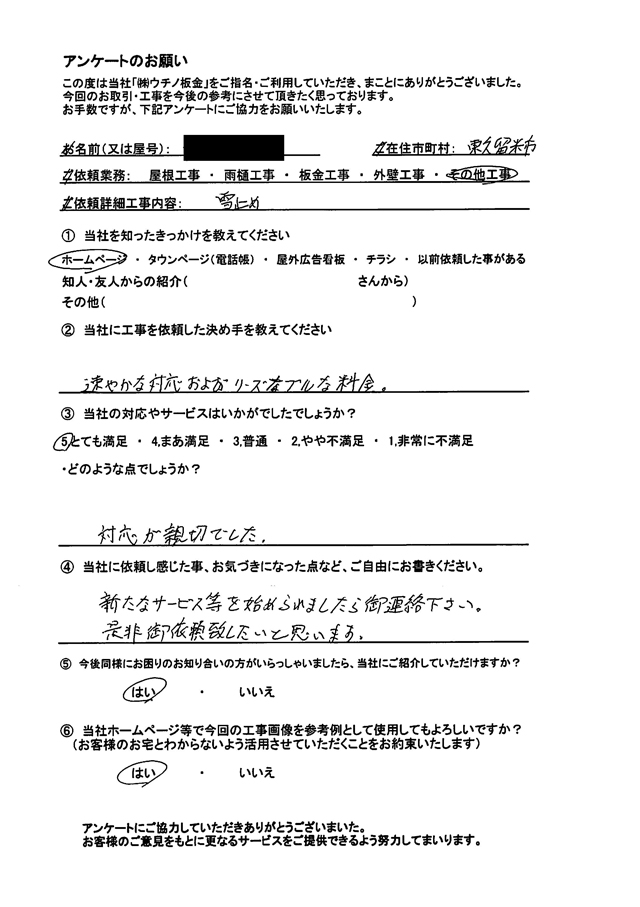 アンケートのお願い
この度は当社「㈱ウチノ板金」をご指名・ご利用していただき、まことにありがとうございました。
今回のお取引・工事を今後の参考にさせて頂きたく思っております。
お手数ですが、下記アンケートにご協力をお願いいたします。
お名前(又は屋号): ご在住市町村: 東久留米市
ご依頼業務: 屋根工事 ・ 雨樋工事 ・ 板金工事 ・ 外壁工事 ・ その他工事
ご依頼詳細工事内容: 雪止め
① 当社を知ったきっかけを教えてください
ホームページ ・ タウンページ(電話帳) ・ 屋外広告看板 ・ チラシ ・ 以前依頼した事がある
知人・友人からの紹介( さんから)
その他( )
② 当社に工事を依頼した決め手を教えてください
速やかな対応およびリーズナブルな料金。
③ 当社の対応やサービスはいかがでしたでしょうか？
5,とても満足 ・ 4,まあ満足 ・ 3,普通 ・ 2,やや不満足 ・ 1,非常に不満足
・どのような点でしょうか？
対応が親切でした。
④ 当社に依頼し感じた事、お気づきになった点など、ご自由にお書きください。
新たなサービス等を始められましたら御連絡下さい。
是非御依頼致したいと思います。
⑤ 今後同様にお困りのお知り合いの方がいらっしゃいましたら、当社にご紹介していただけますか？
はい ・ いいえ
⑥ 当社ホームページ等で今回の工事画像を参考例として使用してもよろしいですか？
(お客様のお宅とわからないよう活用させていただくことをお約束いたします)
はい ・ いいえ
アンケートにご協力していただきありがとうございまいた。
お客様のご意見をもとに更なるサービスをご提供できるよう努力してまいります。